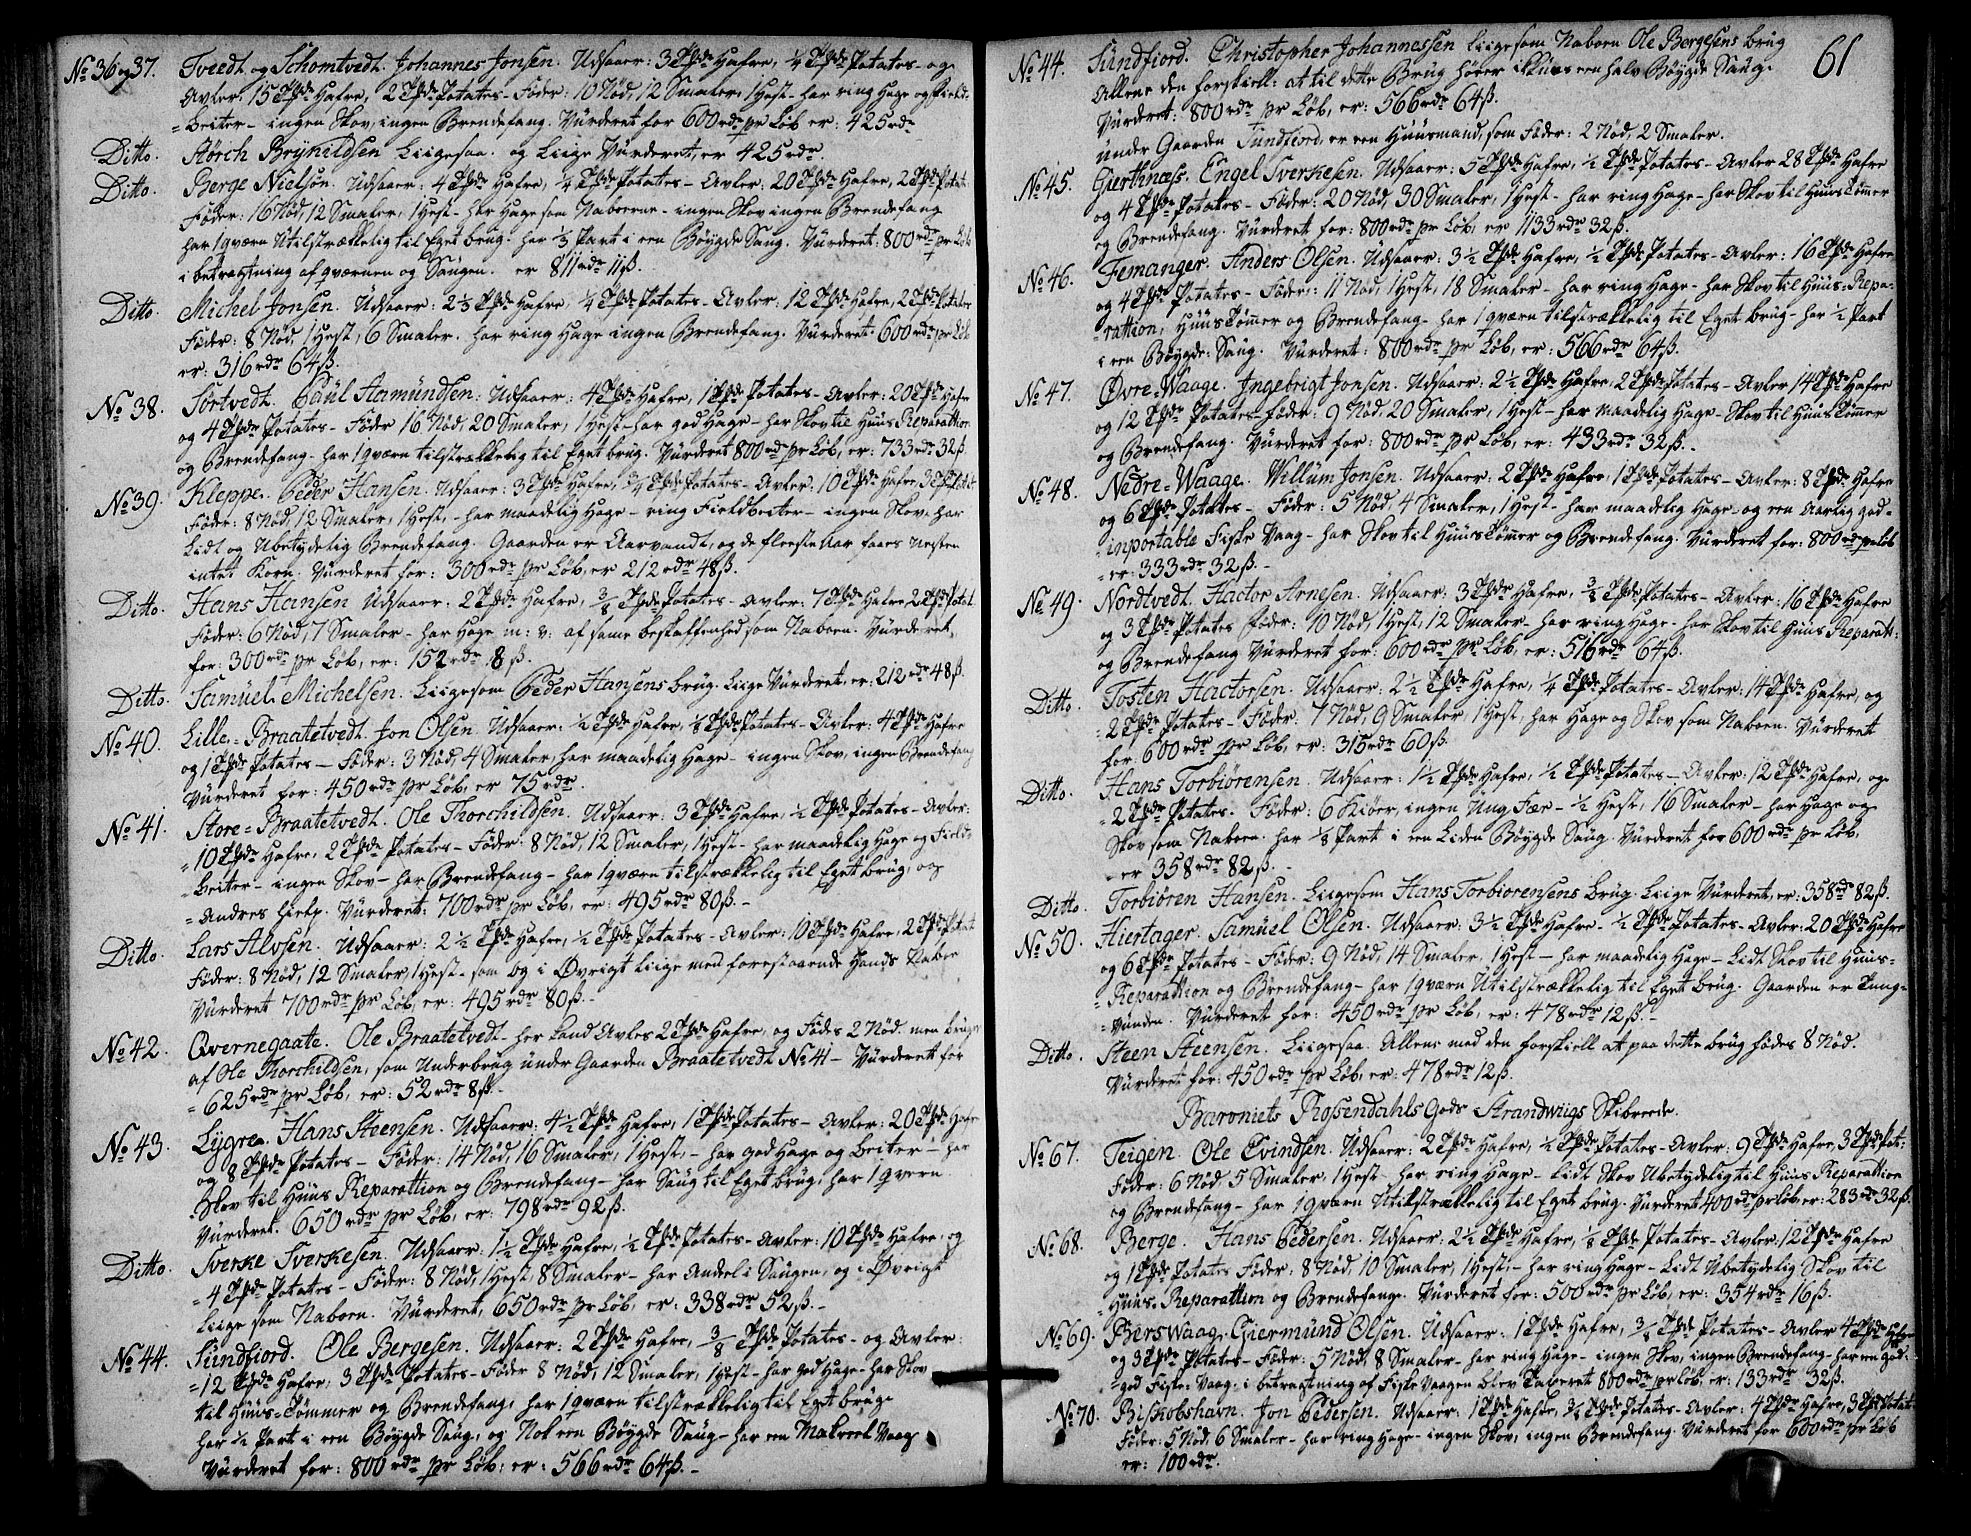 No 36 og 37. Tveedt og Schomtvedt. Johannes Jonsen. Udsaaer: 3 Tønde Hafre, ¼ Tønde Potates og
Avler: 15 Tønde Hafre, 2 Tønde Potates - Føder: 10 Nød, 12 Smaler, 1 Hest - har ring Hage og Field-
beiter - ingen Skov, ingen Brendefang. Vurderet for 600 rdr pr Løb er: 425 rdr
Ditto. Størch Brynildsen Liigesaa. og Liige Vurderet, er 425 rdr.
Ditto. Berge Nielsen. Udsaaer: 4 Tønde Hafre, ¼ Tønde Potates - Avler: 20 Tønde Hafre, 2 Tønde Potat:
Føder: 16 Nød, 12 Smaler, 1 Hest - har Hage som Naboerne - ingen Skov ingen Brendefang
har 1 qværn Utilstrækkelig til Eget brug. har ⅓ Part i een Bøygde Saug. Vurderet: 800 rdr pr Løb
i betragtning af qværnen og Saugen. er 811 rdr 11 ß.
Ditto. Michel Jonsen. Udsaaer: 2⅓ Tønde Hafre, ¼ Tønde Potates - Avler: 12 Tønde Hafre, 2 Tønde Potates
Føder: 8 Nød, 1 Hest, 6 Smaler. har ring Hage ingen Brendefang. Vurderet: 600 rdr pr Løb
er: 316 rdr 64 ß.
No 38. Tortvedt. Paul Aamundsen: Udsaaer: 4 Tønde Hafre, 1 Tønde Potates - Avler: 20 Tønde Hafre
og 4 Tønde Potates - Føder 16 Nød, 20 Smaler, 1 Hest - har god Hage - har Skov til Huus Reparattion
og Brendefang - har 1 qværn tilstrækkelig til Eget brug. Vurderet 800 rdr pr Løb, er: 733 rdr 32 ß.
No 39. Kleppe. Peder Hansen. Udsaaer: 3 Tønde Hafre, ¾ Tønde Potates - Avler: 10 Tønde Hafre 3 Tønde Potat:
Føder: 8 Nød, 12 Smaler, 1 Hest, - har maadelig Hage - ring Fieldbeiter - ingen Skov: har
Lidt og Ubetydelig Brendefang. Gaarden er Aarvandt, og de fleeste Aar faaes nesten
intet Korn. Vurderet for: 300 rdr pr Løb, er 212 rdr 48 ß.
Ditto. Hans Hansen Udsaaer: 2 Tønde Hafre, ⅜ Tønde Potates - Avler: 7 Tønde Hafre, 2 Tønde Potat.
Føder: 6 Nød, 7 Smaler - har Hage m: v: af samme beskaffenhed som Naboen. Vurderet,
for: 300 rdr pr Løb, er: 152 rdr 8 ß.
Ditto. Samuel Michelsen. Liigesom Peder Hansens brug. Liige Vurderet, er: 212 rdr 48 ß.
No 40. Lille-Braatetvedt. Jon Olsen. Udsaaer: ½ Tønde Hafre, ⅛ Tønde Potates - Avler: 4 Tønde Hafre
og 1 Tønde Potates - Føder: 3 Nød, 4 Smaler, har maadelig Hage - ingen Skov, ingen Brendefang
Vurderet for: 450 rdr pr Løb, er 75 rdr.
No 41. Store-Braatetvedt. Ole Thorchildsen. Udsaaer: 3 Tønde Hafre, ½ Tønde Potates - Avler:
10 Tønde Hafre, 2 Tønde Potates - Føder: 8 Nød, 12 Smaler, 1 Hest - har maadelig Hage og Field-
beiter - ingen Skov - har Brendefang - har 1 qværn tilstrækkelig til Eget brug, og
Andres hielp. Vurderet: 700 rdr pr Løb, er: 495 rdr 80 ß.-
Ditto. Lars Alvsen. Udsaaer: 2½ Tønde Hafre, ½ Tønde Potates - Avler: 10 Tønde Hafre, 2 Tønde Potat
Føder: 8 Nød, 12 Smaler, 1 Hest - som og i Øvrigt liige med forestaaende Hands Naboe
Vurderet 700 rdr pr Løb, er: 495 rdr 80 ß.-
No 42. Qvernegaate. Ole Braatetvedt. her Land Avles 2 Tønde Hafre, og Fødes 2 Nød men bruges
af Ole Thorchildsen, som Underbrug under Gaarden Braatetvedt No 41 - Vurderet for
625 rdr pr Løb, er: 52 rdr 8 ß.-
No 43. Lygrea. Hans Steensen. Udsaaer: 4½ Tønde Hafre, 1 Tønde Potates - Avler: 20 Tønde Hafre
og 8 Tønde Potates - Føder: 14 Nød, 16 Smaler, 1 Hest, - har god Hage og beiter - har
Skov til Huus Reparattion og Brendefang - har Saug til Eget brug, har 1 qvern
Vurderet: 650 rdr pr Løb, er: 798 rdr 92 ß.
Ditto. Sverke Sverkesen. Udsaaer: 1½ Tønde Hafre, ½ Tønde Potates - Avler: 10 Tønde Hafre, og
4 Tønde Potates - Føder: 8 Nød, 1 Hest, 8 Smaler - har Andeel i Saugen, og i Øvrigt
liige som Naboen. Vurderet, 650 rdr pr Løb, er: 338 rdr 52 ß.-
No 44. Sundfiord. Ole Bergesen. Udsaaer: 2 Tønde Hafre, ⅜ Tønde Potates - og Avler:
12 Tønde Hafre, 3 Tønde Potates - Føder 8 Nød, 12 Smaler, 1 Hest - har god Hage - har Skov
til Huus-Tømmer og Brendefang, har 1 qværn tilstrækkelig til Eget brug
har ½ Part i een Bøygde Saug, og Nok een Bøygde Saug - har een Makreel Vaag
Vurderet for: 800 rdr pr Løb, er: 566 rdr 64 ß.-
61
No 44. Sundfiord. Christopher Johannessen Liigesom Naboen Ole Bergesens brug
Allene den forskiell: at til dette Brug hører ikkuns een halv Bøygde Saug.
Vurderet: 800 rdr pr Løb, er: 566 rdr 64 ß.
under Gaarden Sundfiord, er een Huusmand, som Føder: 2 Nød, 2 Smaler.
No 45. Gierthnæss. Engel Sverkesen. Udsaaer: 5 Tønde Hafre, ½ Tønde Potates - Avler 28 Tønde Hafre
og 4 Tønde Potates - Føder: 20 Nød, 30 Smaler, 1 Hest - har ring Hage - har Skov til Huus Tømmer
og Brendefang. Vurderet for: 800 rdr pr Løb, er 1133 rdr 32 ß.
No 46. Femanger. Anders Olsen. Udsaaer: 3½ Tønde Hafre, ½ Tønde Potates - Avler: 16 Tønde Hafre
og 4 Tønde Potates - Føder: 11 Nød, 1 Hest, 18 Smaler - har ring Hage - har Skov til Huus-Repa-
rattion, Huus Tømmer og Brendefang - har 1 qværn tilstrækkelig til Eget brug - har ½ Part
i een Bøygde-Saug. Vurderet: 800 rdr pr Løb, er: 566 rdr 64 ß.
No 47. Øvre-Waage. Ingebrigt Jonsen. Udsaaer: 2½ Tønde Hafre, 2 Tønde Potates - Avler 14 Tønde Hafre
og 12 Tønde Potates - Føder: 9 Nød, 20 Smaler, 1 Hest - har maadelig Hage - Skov til Huus Tømmer
og Brendefang. Vurderet for: 800 rdr pr Løb, er: 433 rdr 32 ß.-
No 48. Nedre-Waage. Willum Jonsen. Udsaaer: 2 Tønde Hafre, 1 Tønde Potates - Avler: 8 Tønde Hafre
og 6 Tønde Potates - Føder: 5 Nød, 4 Smaler, 1 Hest - har maadelig Hage - og een Aarlig god-
inportable Fiske Vaag - har Skov til Huus Tømmer og Brendefang. Vurderet for: 800 rdr pr Løb
er: 333 rdr 32 ß.-
No 49. Nordtvedt. Hactor Arnesen. Udsaaer: 3 Tønde Hafre, ⅜ Tønde Potates - Avler: 16 Tønde Hafre
og 3 Tønde Potates Føder: 10 Nød, 1 Hest, 12 Smaler - har ring Hage - har Skov til Huus Reparatt:
og Brendefang Vurderet for: 600 rdr pr Løb, er: 516 rdr 64 ß.
Ditto. Tosten Hactorsen. Udsaaer: 2½ Tønde Hafre, ¼ Tønde Potates - Avler: 14 Tønde Hafre, og
2 Tønde Potates - Føder: 7 Nød, 9 Smaler, 1 Hest, har Hage og Skov som Naboen. Vurderet
for: 600 rdr pr Løb, er: 316 rdr 60 ß.
Ditto. Hans Torbiørensen. Udsaaer: 1½ Tønde Hafre, ½ Tønde Potates - Avler: 12 Tønde Hafre, og
2 Tønde Potates. Føder: 6 Kiøer, ingen Ung Fæe - ½ Hest, 16 Smaler - har Hage og
Skov som Naboen. har ⅛ Part i een Liden Bøygde Saug. Vurderet for 600 rdr pr Løb,
er 358 rdr 82 ß.-
Ditto. Torbiøren Hansen. Liigesom Hans Torbiørensens brug. Liige Vurderet, er: 358 rdr 82 ß.
No 50. Hiertager. Samuel Olsen. Udsaaer: 3½ Tønde Hafre - ½ Tønde Potates - Avler: 20 Tønde Hafre
og 6 Tønde Potates - Føder: 9 Nød, 14 Smaler, 1 Hest - har maadelig Hage - Lidt Skov til Huus-
Reparattion og Brendefang - har 1 qværn Utilstrækkelig til Eget brug. Gaarden er Tung-
vunden. Vurderet for: 450 rdr pr Løb, er: 478 rdr 12 ß.-
Ditto. Steen Steensen. Liigesaa. Allene med den forskiell at paa dette brug fødes 8 Nød.
Vurderet for: 450 rdr pr Løb, er: 478 rdr 12 ß.
Baroniets Rossendahls Gods Strandwiigs Skibreede.
No 67. Teigen. Ole Evindsen. Udsaaer: 2 Tønde Hafre, ½ Tønde Potates - Avler: 9 Tønde Hafre, 3 Tønde Pot:
Føder: 6 Nød 5 Smaler, 1 Hest - har ring Hage - Lidt Skov Ubetydelig til Huus Reparattion
og Brendefang - har 1 qværn Utilstrækkelig til Eget brug. Vurderet 400 rdr pr Løb er: 283 rdr 32 ß.
No 68. Berge. Hans Pedersen. Udsaaer: 2½ Tønde Hafre, ⅛ Tønde Potates - Avler: 12 Tønde Hafre
og 1 Tønde Potates Føder, 8 Nød, 10 Smaler, 1 Hest, - har ring Hage - Lidt Ubetydelig Skov til
Huus-Reparattion og Brendefang. Vurderet for: 500 rdr pr Løb, er: 354 rdr 16 ß.
No 69. Berswaag. Giermund Olsen. Udsaaer: 1 Tønde Hafre, ¾ Tønde Potates - Avler 4 Tønde Hafre
og 3 Tønde Potates - Føder: 5 Nød, 8 Smaler - har ring Hage - ingen Skov, ingen Brendefang - har een god-
god Fiske-Vaag, i betragtning af Fiske Vaagen blev Taxeret 800 rdr pr Løb, er: 133 rdr 32 ß.
No 70. Biskobshavn. Jon Pedersen. Udsaaer: 1 Tønde Hafre, ¾ Tønde Potates - Avler: 4 Tønde Hafre, 3 Tønde Potat:
Føder: 5 Nød, 6 Smaler - har ring Hage - ingen Skov, ingen Brendefang. Vurderet for 600 rdr pr Løb
er: 100 rdr.